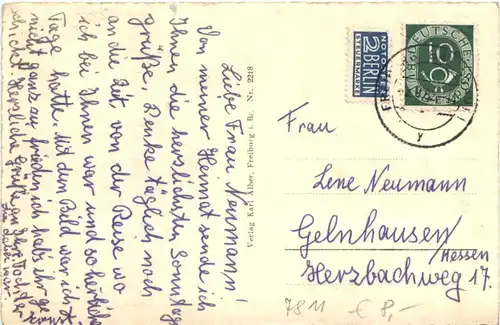 Liebe Frau Neumann!
Von meiner Heimat sende ich
Ihnen die herzlichsten Sonntag
grüße. Denke täglich noch
an die Zeit von der Reise wo
ich bei Ihnen war und so herliche
Tage hatte. Mit dem Bild war ich
nicht ganz zu frieden ich habe ihr
nicht. Herzliche Grüße an Ihre Tochter
Verlag Karl Alber, Freiburg i. Br. Nr. 2218
NOTOPFER
2 BERLIN
STEUERMARKE
DEUTSCHE
10
Frau
Lene Neumann
Gelnhausen/
Hessen
Herzbachweg 17.
7811 € 8,-